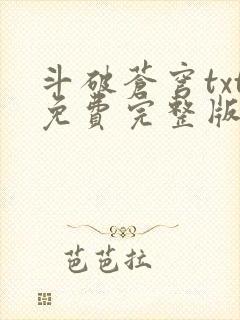 斗破蒼穹txt
免費完整版
芭芭拉